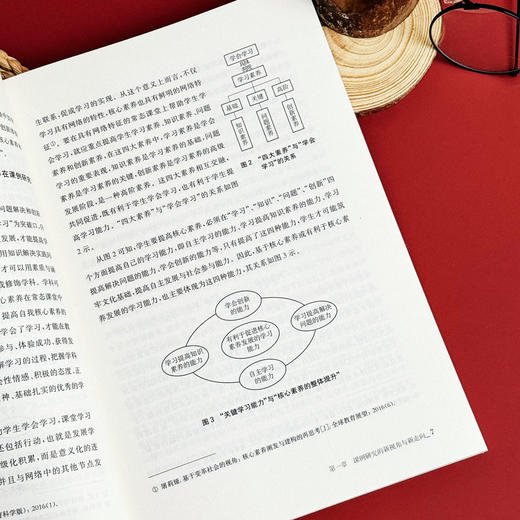 生联系，促成学习的实现。从这个意义上而言，不仅
学习具有网络的特性，核心素养也具有鲜明的网络特
征①。要在具有网络特征的常态课堂上帮助学生学
会学习，就应重点提高学生学习素养、知识素养、问题
素养和创新素养。在这四大素养中，学习素养是学会
学习的重要表现，知识素养是学习素养的基础，问题
素养是学习素养的关键，创新素养是学习素养的高级
发展阶段，是一种高阶素养。这四大素养相互交融，
共同促进，既有利于学生学会学习，也有利于学生提
高学习能力。“四大素养”与“学会学习”的关系如图
2 示。
学会学习
学习素养
基础
关键
高阶
知识素养
问题素养
创新素养
图 2 “四大素养”与“学会
学习”的关系
从图 2 可知，学生要提高核心素养，必须在“学习”、“知识”、“问题”、“创新”四
个方面提高自己的学习能力，即自主学习的能力、学习提高知识素养的能力、学习
提高解决问题的能力、学会创新的能力等，只有提高了这四种能力，学生才可能筑
牢文化基础，提高自主发展与社会参与能力。因此，基于核心素养或有利于核心素
养发展的学习能力，也主要体现为这四种能力，其关系如图 3 示。
学会创新
的能力
学习提高知识
素养的能力
有利于促进核心
素养发展的学习
能力
学习提高解决
问题的能力
自主学习
的能力
图 3 “关键学习能力”与“核心素养的整体提升”
① 屠莉娅.基于变革社会的视角：核心素养阐发与建构的再思考[J].全球教育展望，2016(6).
第一章 课例研究的新视角与新走向 7
在课例研
问题解决和创
学习”为突破口，
发展，才能提高学
用知识解决实践
才可以用素质与
或修饰学科。学科
心素养在常态课堂中
提高自我核心素养的
学会了学习，才能在教
参与、体验成功，获得发
解学习的过程，把握学科
会性情感、积极的态度、正
神、基础扎实的优秀的学
助学生学会学习，课堂学习
还包括行动，也就是发展学
级化积累，而是意义化的连
并且与网络中的其他节点发
育科学版)，2016(1).